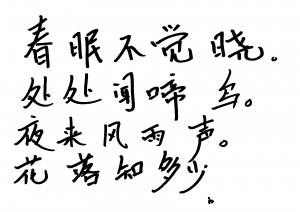 春眠不觉晓。
处处闻啼鸟。
夜来风雨声。
花落知多少